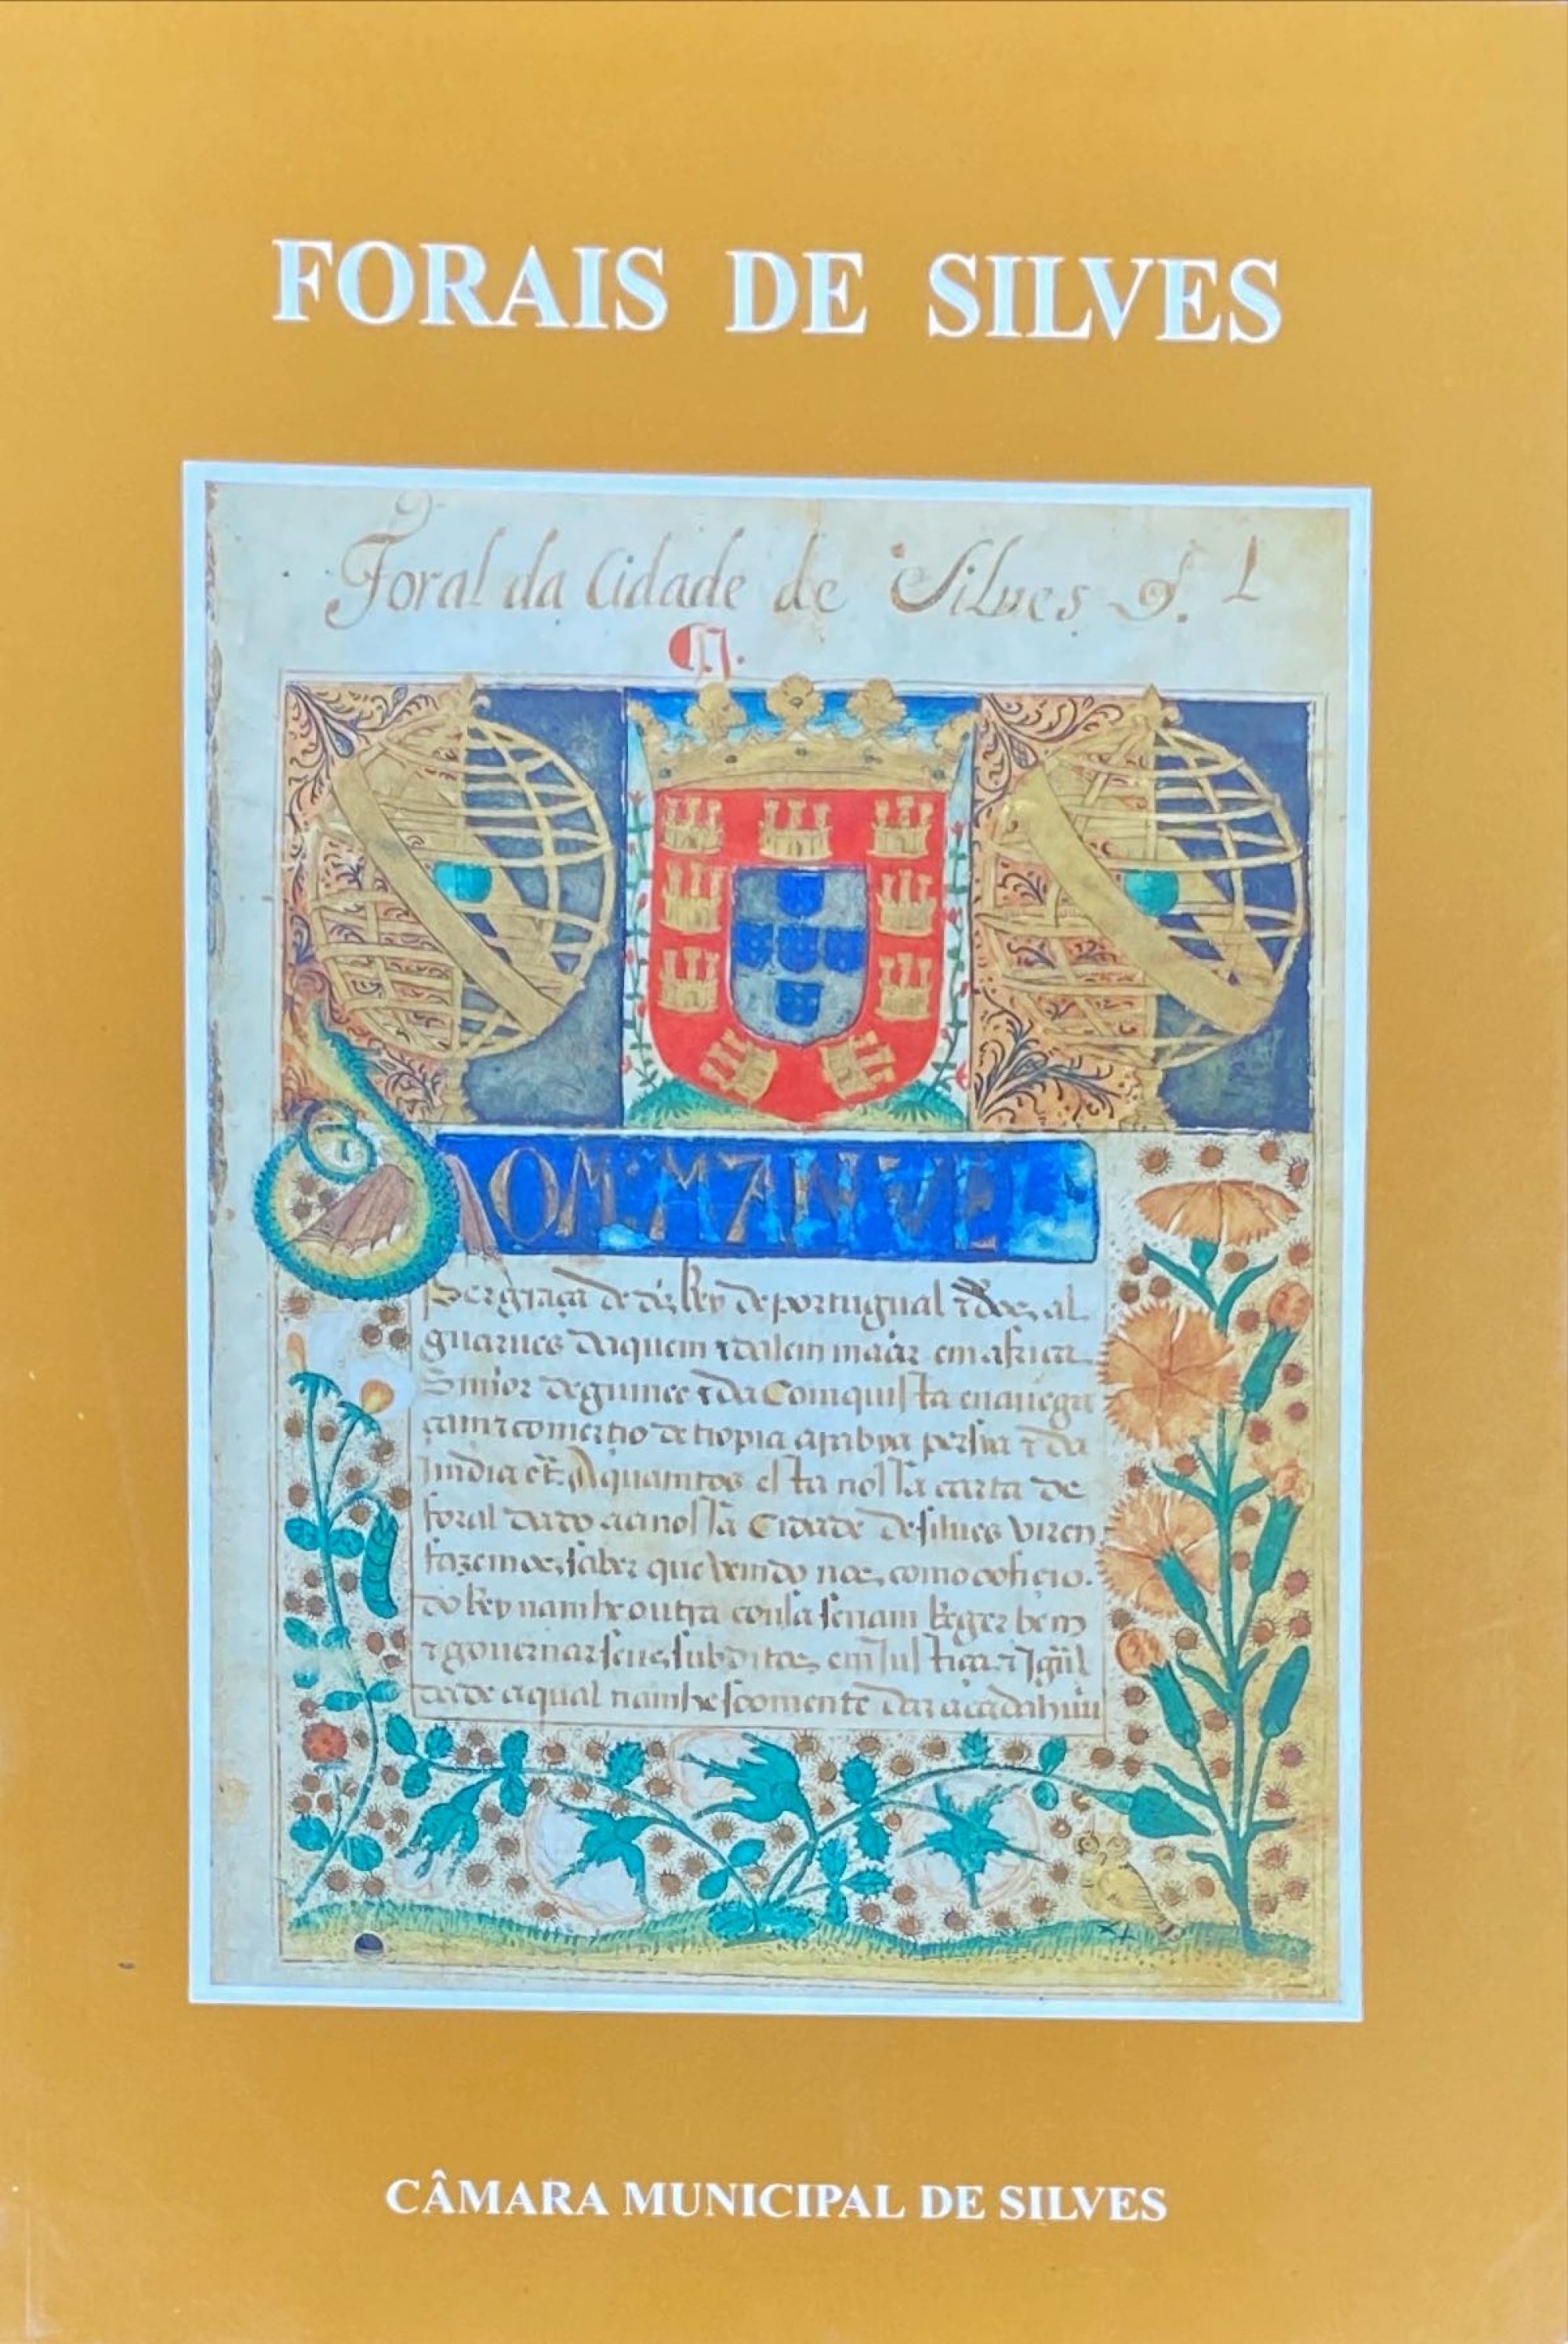 FORAIS DE SILVES
Foral da Cidade de Silves
DOM MANVEL
Per graça de ds Rey de portugual τ dos al
guarues daquem τ dalem maar em africa
Sñnor de guinee τ da Comquista e nauega
çam τ comertio de tiopia arabya persia τ da
Jmdia A quamtos esta nossa carta de
foral dado aa nossa Cidade de silues viren
fazemos saber que
do Rey nam he outra cousa senam Reger bem
τ gouernar seus subditos em Justiça τ
dade a qual nam he soomente dar a cada huũ
CÂMARA MUNICIPAL DE SILVES